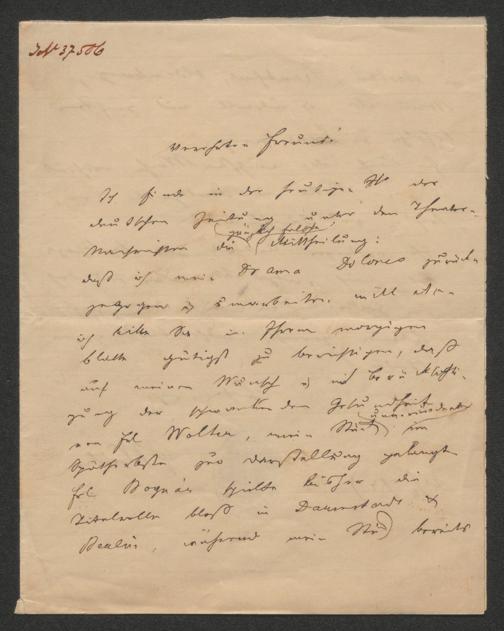 JN 37506
Verehrter Freund!
Ich finde in der heutigen Nr der
deutschen Zeitung unter den Theater-
gänzlich falsche
Nachrichten die Mittheilung:
daß ich mein Drama Dolores zurück-
gezogen &
ich bitte Sie in Ihrem morgigen
Blatte gütigst zu berichtigen, daß
auf meinen Wunsch & mit Berücksichti-
gung der schwankenden Gesundheit
von Frl Wolter, mein Stück im
Spätherbste zur Darstellung gelangt
Frl Bognár spielte bisher die
Titelrolle bloß in Darmstadt &
Berlin, während mein Stück bereits